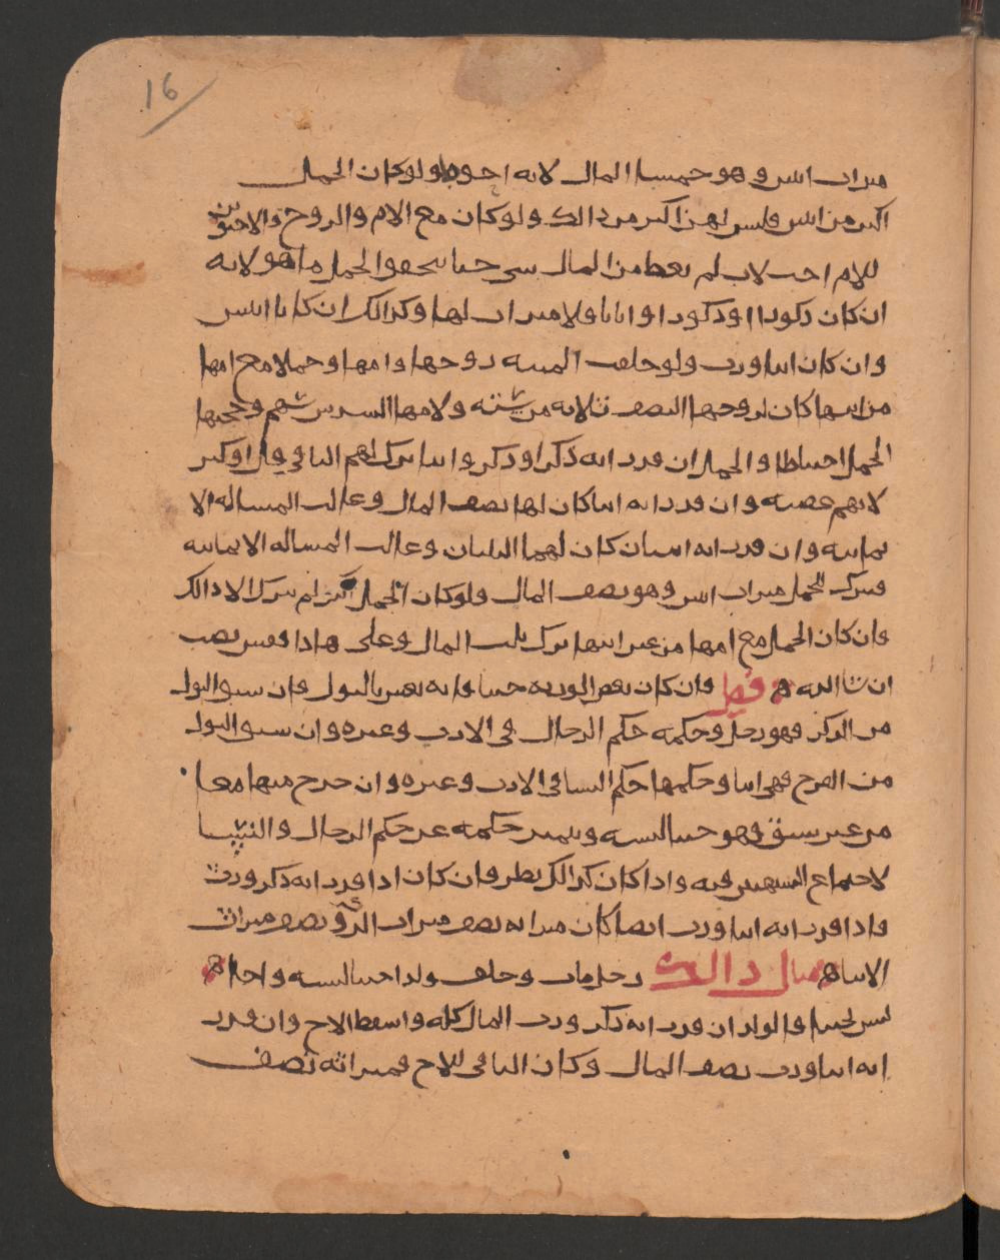 16
ميراث ابنين وهو خمسا المال لانه احوط ولو كان الحمل
اكثر من اثنين فليس لهن اكثر من ذالك ولو كان مع الام والزوج والاخوين
للام اخت لاب لم يعطا من المال شي حتا يتحققوا الحمل ما هو لانه
ان كان ذكورا او ذكورا واناثا فلا ميراث لها وكذالك ان كانا اثنين
وان كان انثا ورث ولو خلفت الميته زوجها وامها وحملا مع امها
من ابيها كان لزوجها النصف ثلاثه من سته ولامها السدس سهم وحجبها
الحمل احتياطا والحمل ان قدر انه ذكرا او ذكر وانثا ترك لهم الباقي قل او كثر
لانهم عصبه وان قدر انه انثا كان لها نصف المال وعالت المساله الا
ثمانيه وان قدر انه انثيان كان لهما الثلثان وعالت المساله الا ثمانيه
فيترك للحمل ميراث اثنين وهو نصف المال فلو كان الحمل اكثر لم يترك الا ذالك
وان كان الحمل مع امها من غير ابيها ترك ثلث المال وعلى هاذا فقس تصب
ان شا الله ه فصل فان كان بعض الورثه خنثا فانه يعتبر بالبول فان سبق البول
من الذكر فهو رجل وحكمه حكم الرجال في الارث وغيره وان سبق البول
من الفرج فهي انثا وحكمها حكم النسا في الارث وغيره وان خرج منهما معا
من غير سبق فهو خنثا لبسه ويتميز حكمه عن حكم الرجال والنسا
لاجتماع الشبهين فيه واذا كان كذالك نظر فان كان اذا قدر انه ذكر ورث
واذا قدر انه انثا ورث ايضا كان ميراثه نصف ميراث الذكر ونصف ميراث
الانثا ه مثال ذالك رجل مات وخلف ولدا خنثا لبسه واخا ه
ليس بخنثا فالولد ان قدر انه ذكر ورث المال كله واسقط الاخ وان قدر
انه انثا ورث نصف المال وكان الباقي للاخ فميراثه نصف